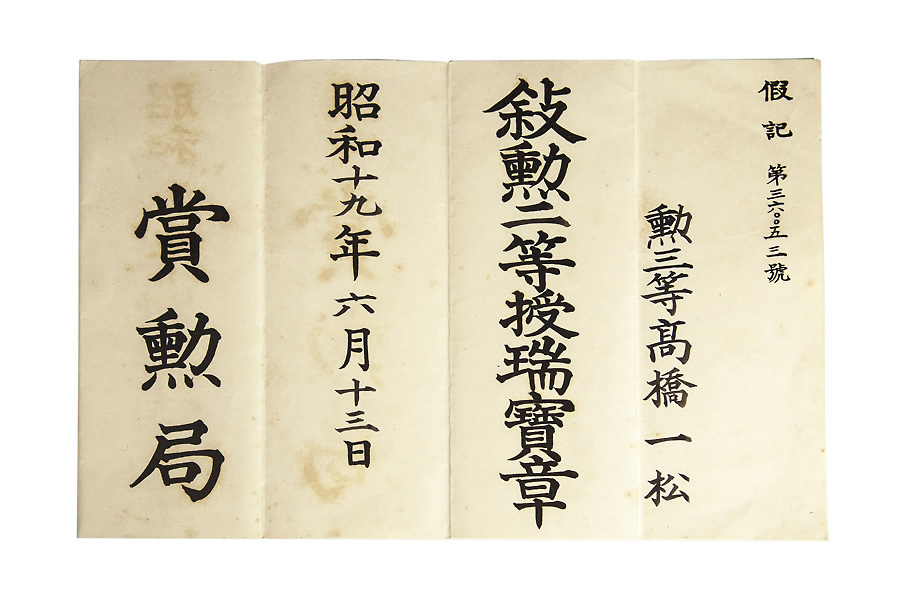 假記
第三六〇〇五三號
勲三等髙橋一松
敍勲二等授瑞寶章
昭和十九年六月十三日
賞勲局